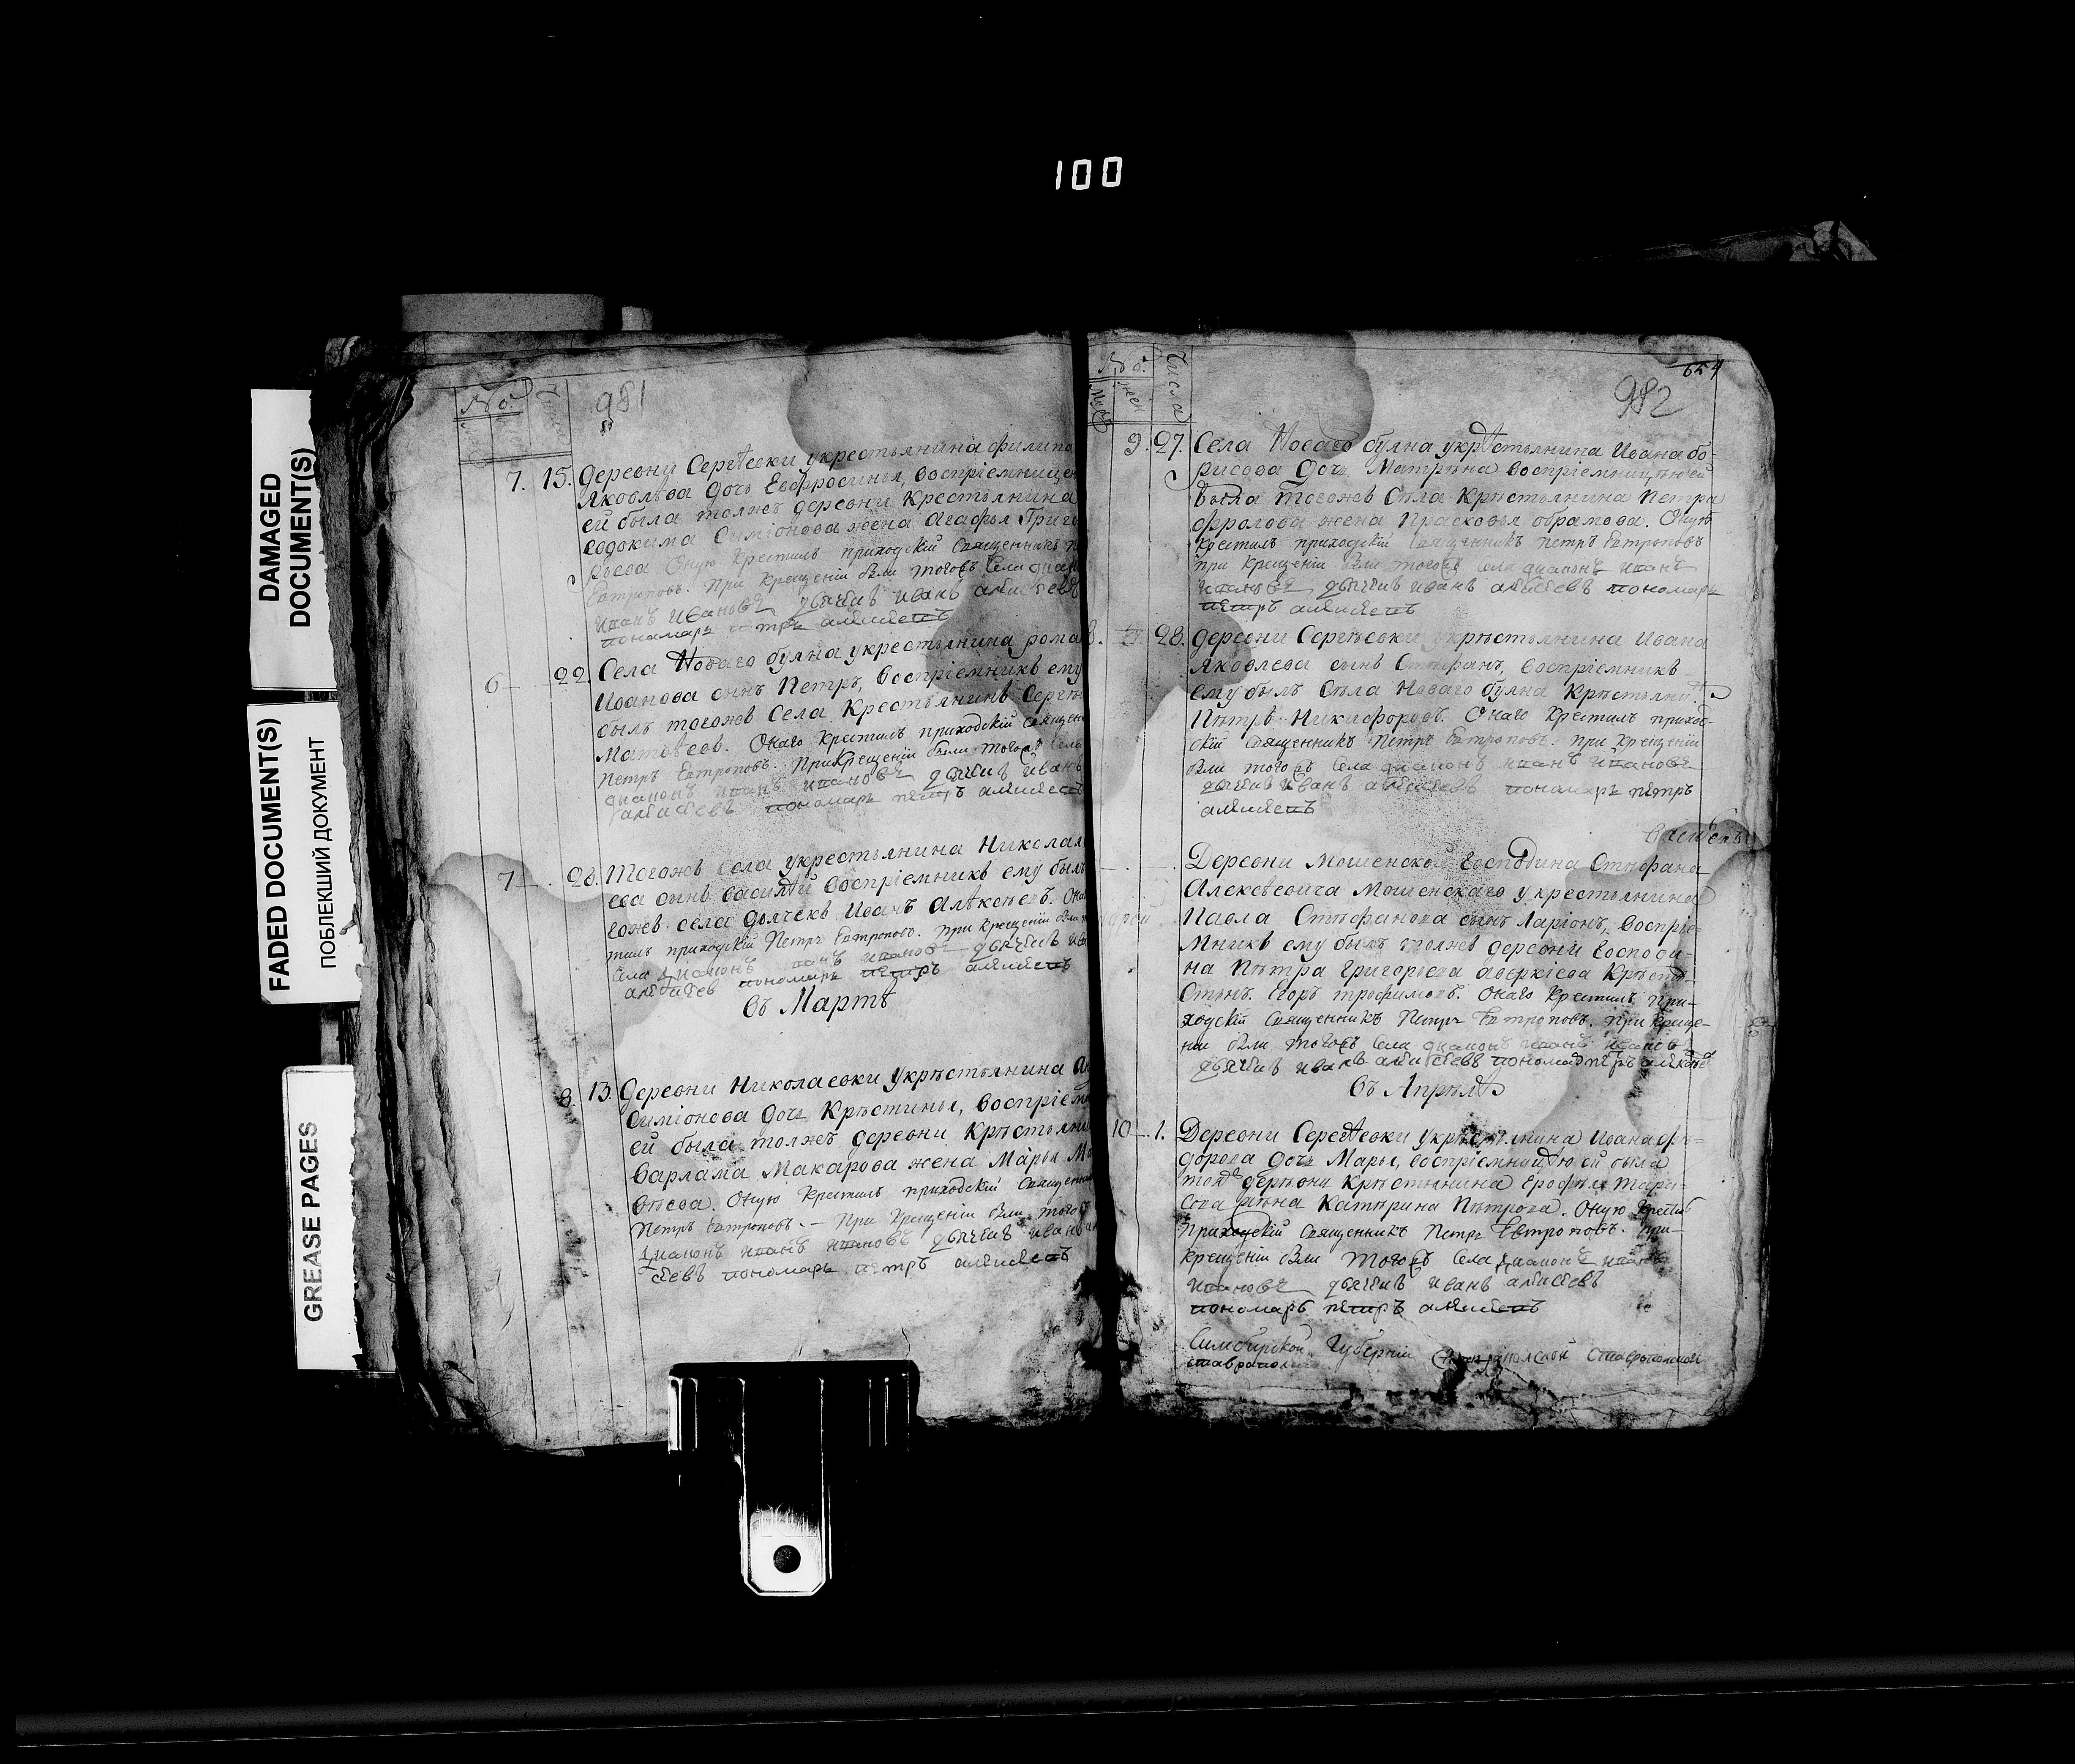 100
DAMAGED
DOCUMENT(S)
FADED DOCUMENT(S)
ПОБЛЕКШИЙ ДОКУМЕНТ
GREASE PAGES
№
981
7. 15. Деревни Сергѣевки укрестьянина филипа
Яковлѣва дочь Евфросинья, воспріемнице
ей была тояжъ деревни Крестьянина
евдокима Симіонова жена Агафья Григо
рьева Оную Крестилъ приходскій Священникъ
Евтроповъ. При Крещеніи были тогожъ Села диако
иванъ ивановъ дьячекъ иванъ алексеевъ
пономарь петръ алексеевъ
6 22 Села Новаго буяна укрестьянина рома
Иванова сынъ Петръ, воспріемникъ ему
былъ тогожъ Села Крестьянинъ Сергѣ
Матвѣевъ. Онаго Крестилъ приходскій Священ
Петръ Евтроповъ. При Крещеніи были тогожъ Села
диаконъ иванъ ивановъ дьячекъ иванъ
алексеевъ пономарь петръ алексеевъ
7 28. Тогожъ Села укрестьянина Никола
ева сынъ василѣй воспріемникъ ему былъ
гожъ села дьячекъ Иванъ Алѣксѣевъ. Она
тилъ приходскій Петръ Евтроповъ. При Крещеніи были
Села диаконъ иванъ ивановъ дьячекъ ива
алексеев пономарь петръ алексеевъ
въ Мартѣ
8. 13. Деревни Николаевки Укрѣстьянина
Симіонова дочь Крѣстинья, воспріем
ей была тояжъ деревни Крѣстьяни
варлама Макарова жена Марья Ма
вѣева. Оную Крестилъ приходскій Священни
Петръ Евтроповъ. — При Крещеніи были тогож
диаконъ иванъ ивановъ дьячекъ иванъ ал
ѣевъ пономарь петръ алексеевъ
№ Числа
654
982
9. 27. Села Новаго буяна укрѣстьянина Ивана бо-
рисова дочь Матрѣна воспріемницѣю ей
была тогожъ Сѣла Крѣстьянина Петра
фролова жена Прасковья абрамова. Оную
Крестилъ приходскій Священникъ Петръ Евтроповъ
при Крещеніи были тогожъ Села диаконъ иванъ
ивановъ дьячекъ иванъ алексеевъ пономарь
петръ алексеевъ
8. 28. Деревни Сергѣевки укрѣстьянина Ивана
Яковлева сынъ Стѣфанъ, воспріемникъ
ему былъ Сѣла Новаго буяна Крѣстьянинъ
Пѣтръ Никифоровъ. Онаго Крестилъ приход-
скій Священникъ Петръ Евтроповъ. при Крещеніи
были тогожъ Села диаконъ иванъ ивановъ
дьячекъ иванъ алексеевъ пономарь петръ
алексеевъ
Деревни Мошенской Господина Стѣфана
Алексѣевича Мошенскаго укрестьянина
Павла Стѣфанова сынъ Ларіонъ, воспріе-
мникъ ему былъ тояжъ деревни Господи-
на Пѣтра Григорьева аверкіева Крѣсть-
Егоръ трофимовъ. Онаго Крестилъ При-
ходскій Священникъ Петръ Евтроповъ. При Креще-
ніи были тогожъ Села диаконъ иванъ ивановъ
дьячекъ иванъ алексеевъ пономарь петръ алексеев
въ Апрѣлѣ
10 1. Деревни Сергѣевки Укрѣстьянина Ивана Фѣ-
дорова дочь Марья, воспріемницѣю ей была
тояжъ дерѣвни Крѣстьянина Ерофѣя Тара-
сова жѣна Катѣрина Пѣтрова. Оную Крестилъ
Приходскій Священникъ Петръ Евтроповъ. при-
крещеніи были тогожъ Села диаконъ иванъ
ивановъ дьячекъ иванъ алексеевъ
пономарь петръ алексеевъ
Симбирской Губерніи Ставропольской